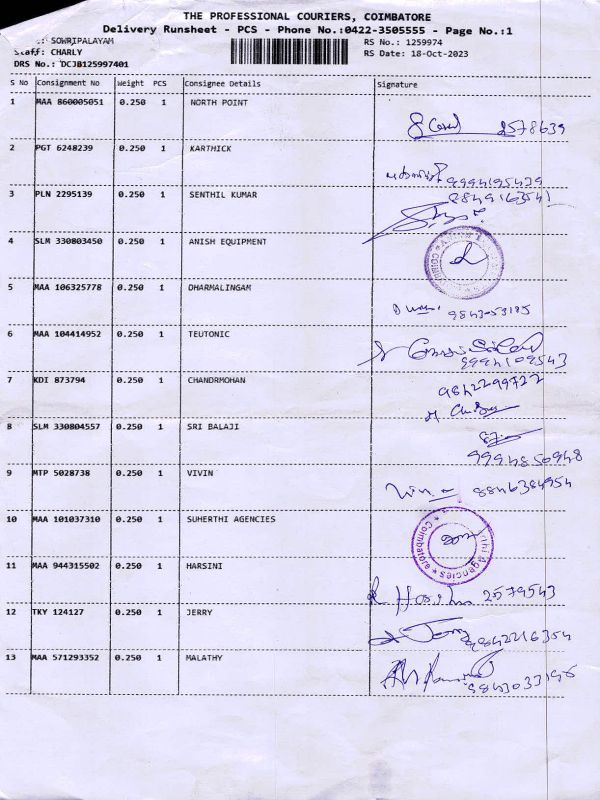 THE PROFESSIONAL COURIERS, COIMBATORE
Delivery Runsheet - PCS - Phone No.:0422-3505555 - Page No.:1
: SOWRIPALAYAM
Staff: CHARLY
DRS No.: DCJB125997401
RS No.: 1259974
RS Date: 18-Oct-2023
S No Consignment No Weight PCS Consignee Details Signature
1 MAA 860005051 0.250 1 NORTH POINT
2578639
2 PGT 6248239 0.250 1 KARTHICK
9994195439
3 PLN 2295139 0.250 1 SENTHIL KUMAR
8849163541
4 SLM 330803450 0.250 1 ANISH EQUIPMENT
5 MAA 106325778 0.250 1 DHARMALINGAM
9843053185
6 MAA 104414952 0.250 1 TEUTONIC
9994109543
7 KDI 873794 0.250 1 CHANDRMOHAN
9842299722
8 SLM 330804557 0.250 1 SRI BALAJI
9994850948
9 MTP 5028738 0.250 1 VIVIN
8846384954
10 MAA 101037310 0.250 1 SUHERTHI AGENCIES
Agencies * Coimbatore *
11 MAA 944315502 0.250 1 HARSINI
2579543
12 TKY 124127 0.250 1 JERRY
9842216354
13 MAA 571293352 0.250 1 MALATHY
9843033196